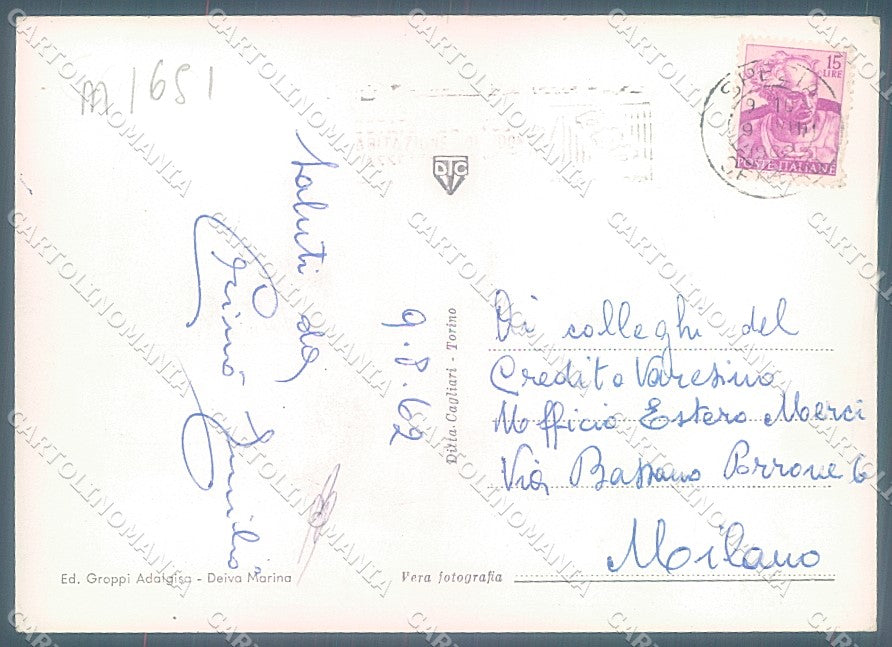 m 1651
15
LIRE
POSTE ITALIANE
DTC
Saluti da
9.8.62
Ditta Cagliari - Torino
colleghi del
Credito Varesino
Ufficio Estero Merci
Via Bassano Porrone 6
Milano
Ed. Groppi Adalgisa - Deiva Marina
Vera fotografia
CARTOLINOMANIA